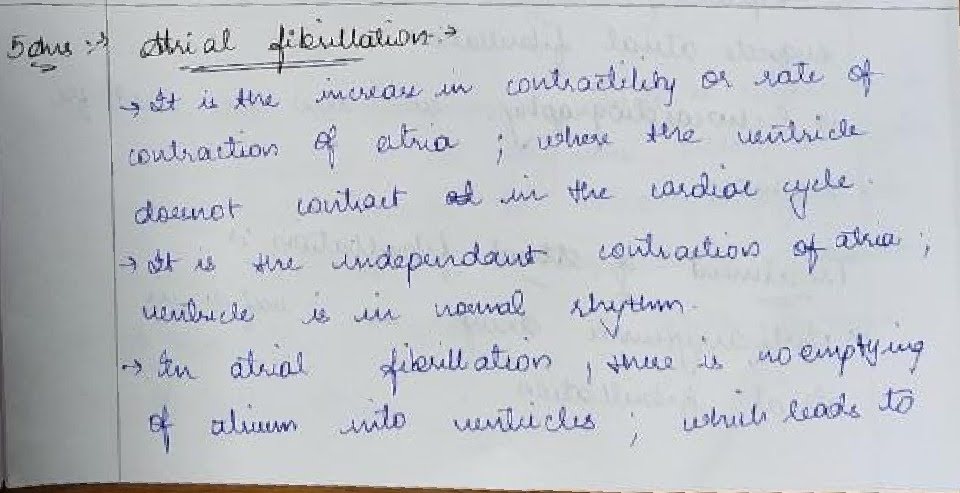 5 ans :→ Atrial fibrillation :→
→ It is the increase in contractility or rate of
contraction of atria ; where the ventricle
doesnot contract in the cardiac cycle.
→ It is the independant contraction of atria ;
ventricle is in normal rhythm.
→ In atrial fibrillation , there is no emptying
of atrium into ventricles ; which leads to